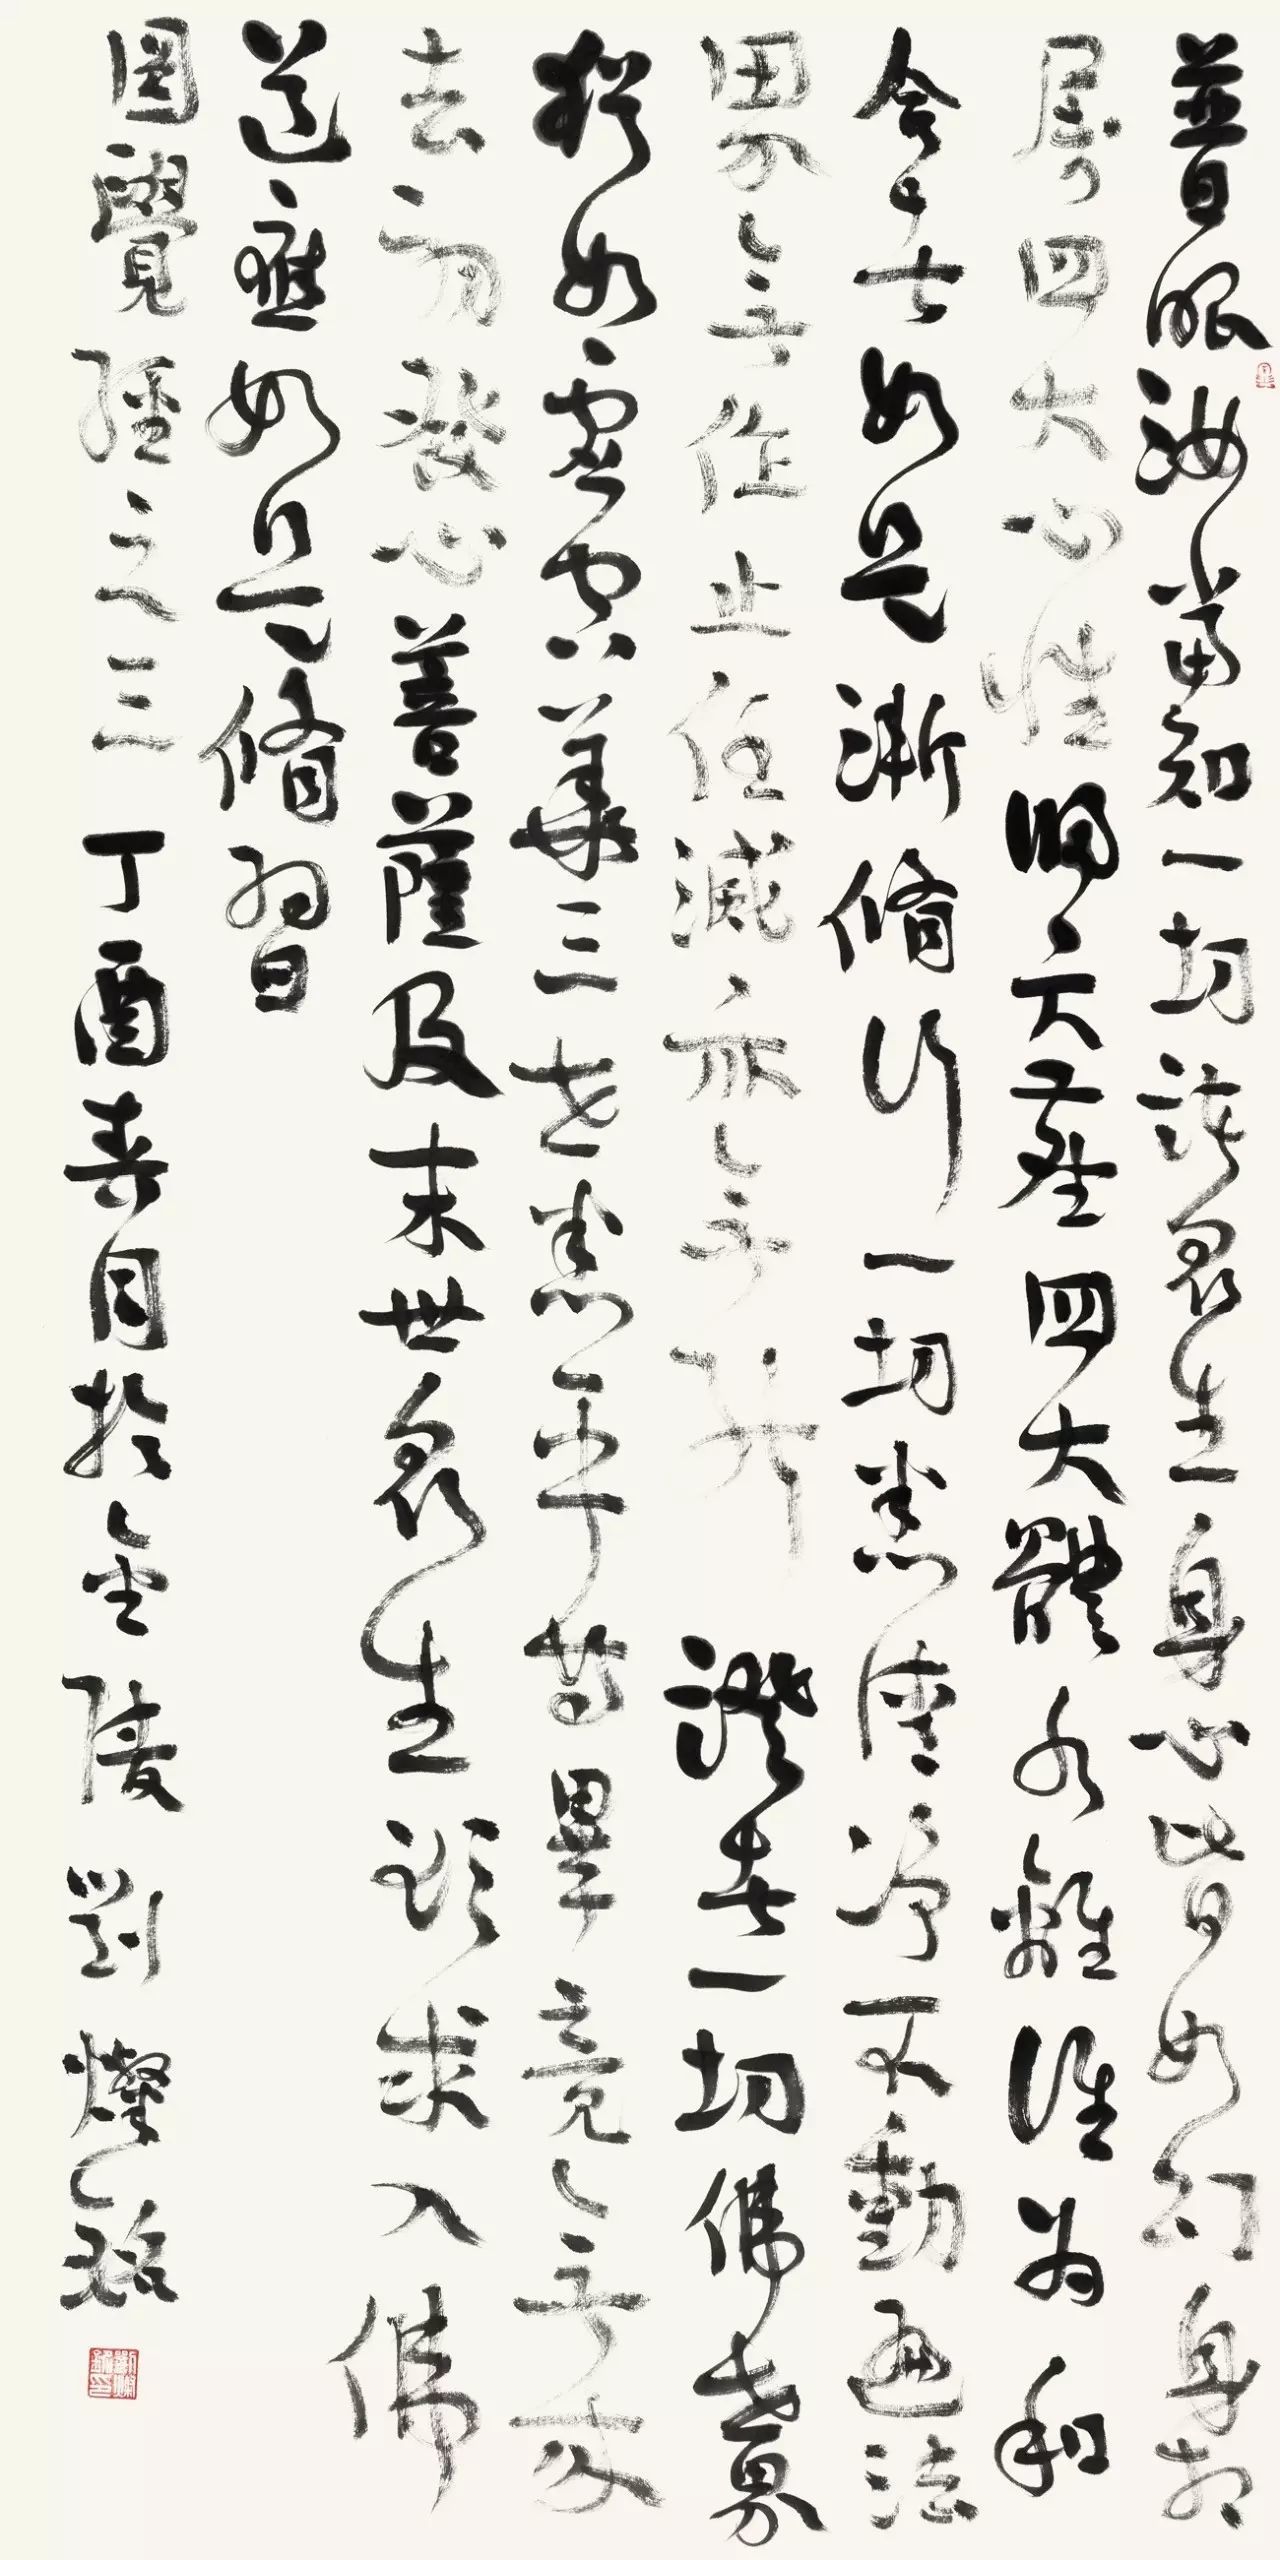 普眼汝當知一切諸眾生身心皆如幻身相
屬四大心性歸六塵四大體各離誰為和
合者如是漸脩行一切悉清淨不動遍法
界無作止任滅亦無能證者一切佛世界
猶如虛空華三世悉平等畢竟無來
去初發心菩薩及末世眾生欲求入佛
道應如是脩習
圓覺經之三丁酉春月於金陵劉燦銘
劉燦銘印